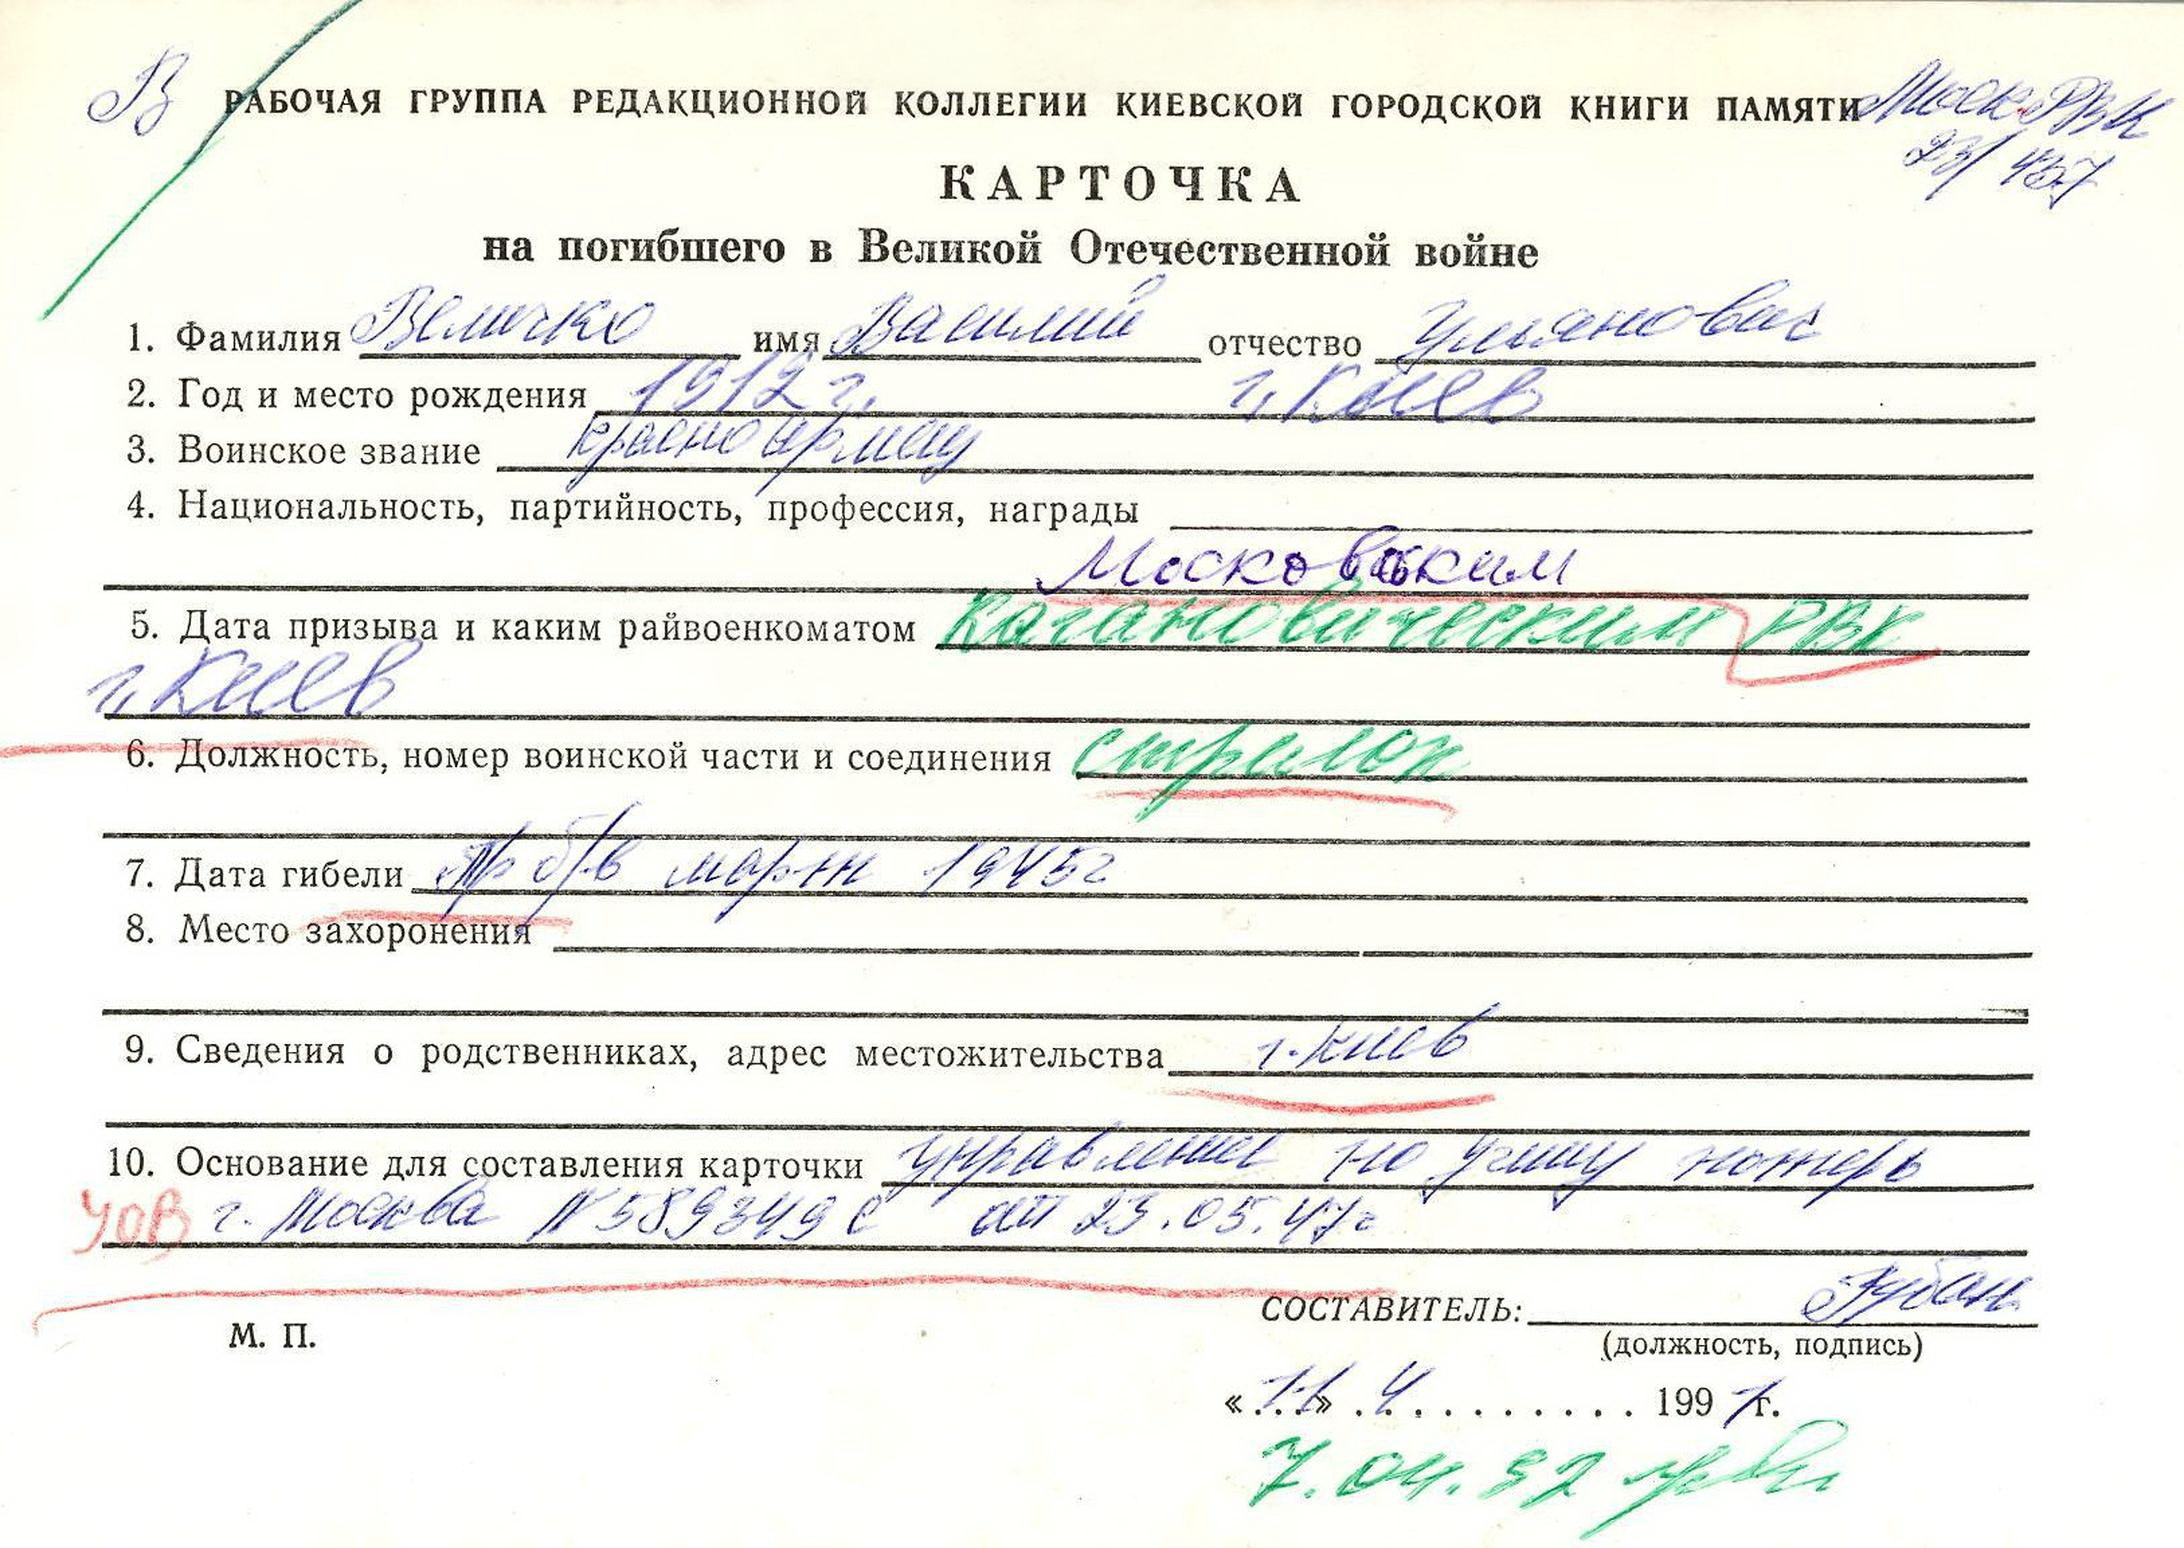 В РАБОЧАЯ ГРУППА РЕДАКЦИОННОЙ КОЛЛЕГИИ КИЕВСКОЙ ГОРОДСКОЙ КНИГИ ПАМЯТИ Моск. РВК
23/457
КАРТОЧКА
на погибшего в Великой Отечественной войне
1. Фамилия Величко имя Василий отчество Ульянович
2. Год и место рождения 1912 г. г. Киев
3. Воинское звание красноармеец
4. Национальность, партийность, профессия, награды
Московским
5. Дата призыва и каким райвоенкоматом Кагановическим РВК
г. Киев
6. Должность, номер воинской части и соединения стрелок
7. Дата гибели пр б/в март 1945г
8. Место захоронения
9. Сведения о родственниках, адрес местожительства г. Киев
10. Основание для составления карточки управление по учету потерь
УОВ г. Москва N 589349 с от 23.05.47г
СОСТАВИТЕЛЬ: Рубан
М. П.
(должность, подпись)
«11» 4 1991 г.
7.04.92